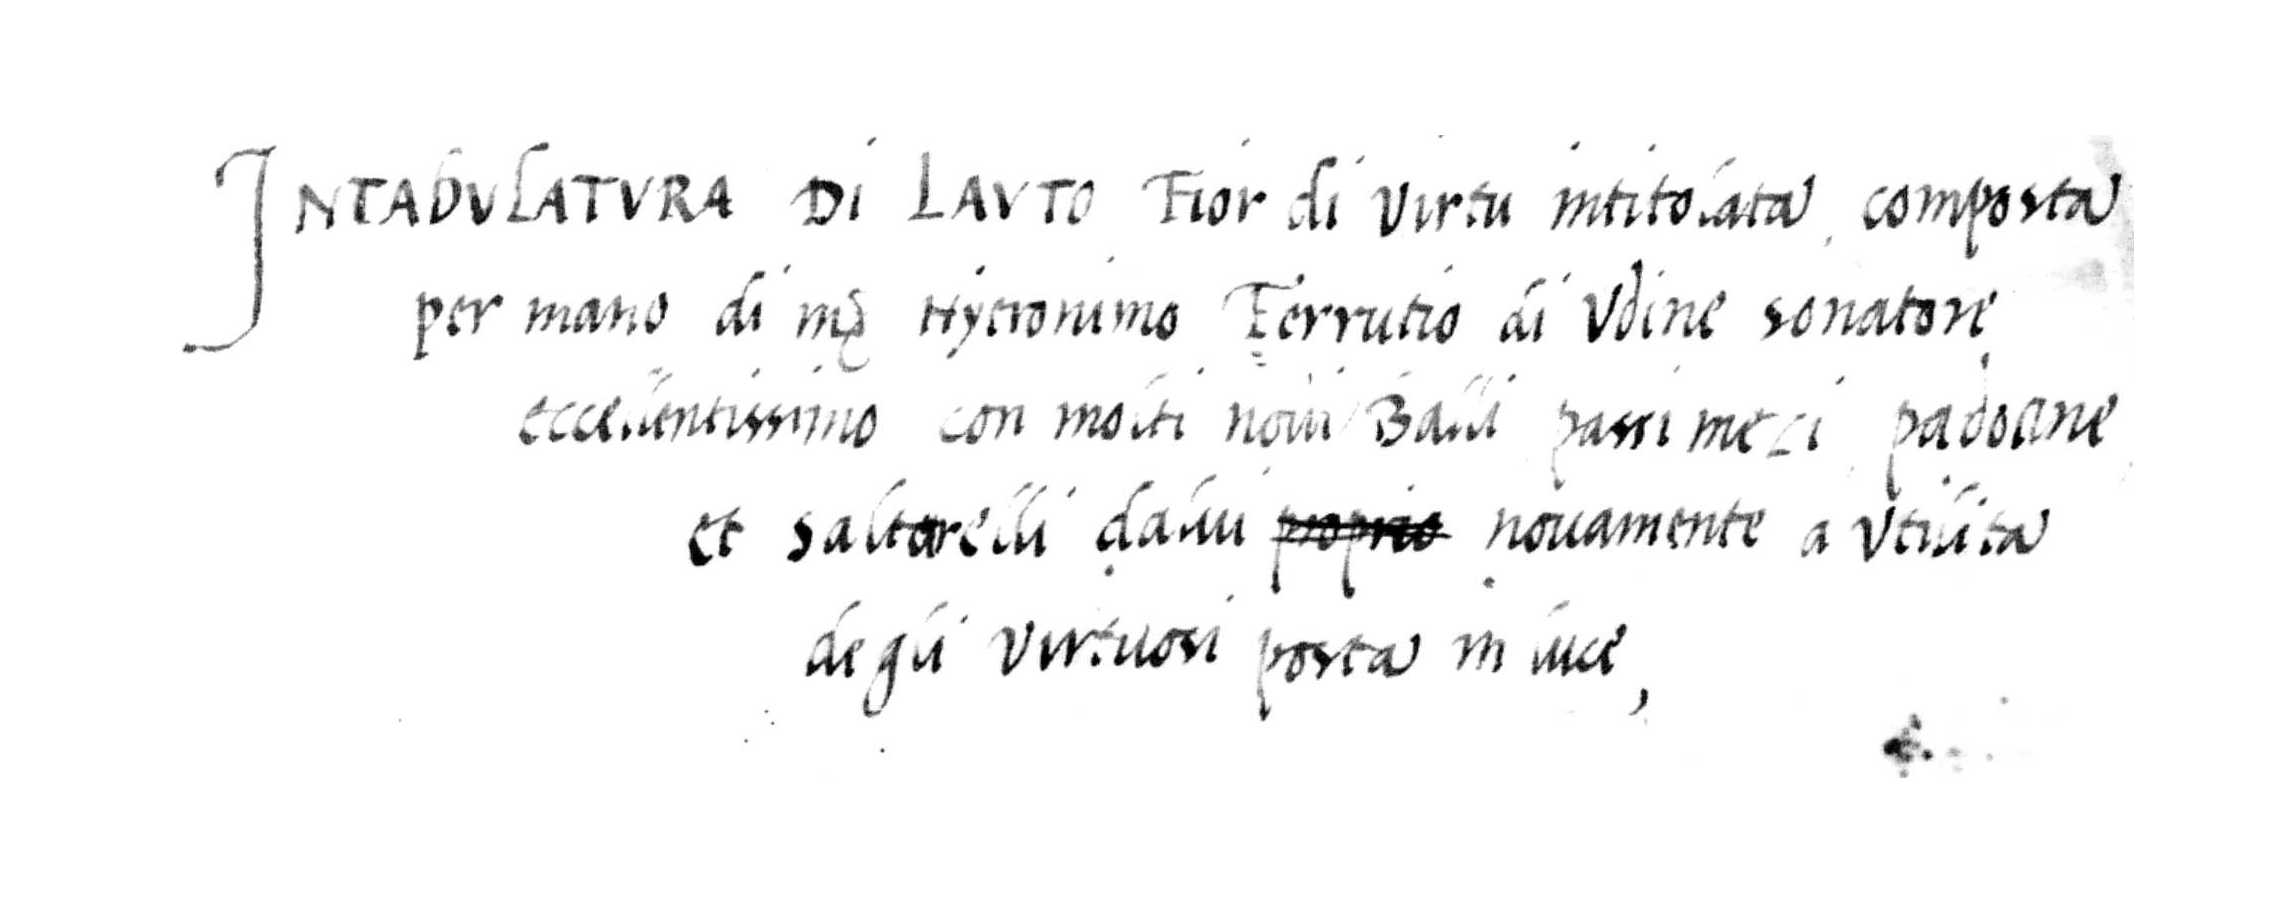 INTAbVLATVRA Di LAVTO Fior di virtu intitolata, composta
per mano di Hyeronimo Ferrutio di Vdine sonatore
eccellentissimo con molti noui Balli passi mezi, padoane,
et saltarelli dalui proprio nouamente a vtilita
degli virtuosi posta in luce,